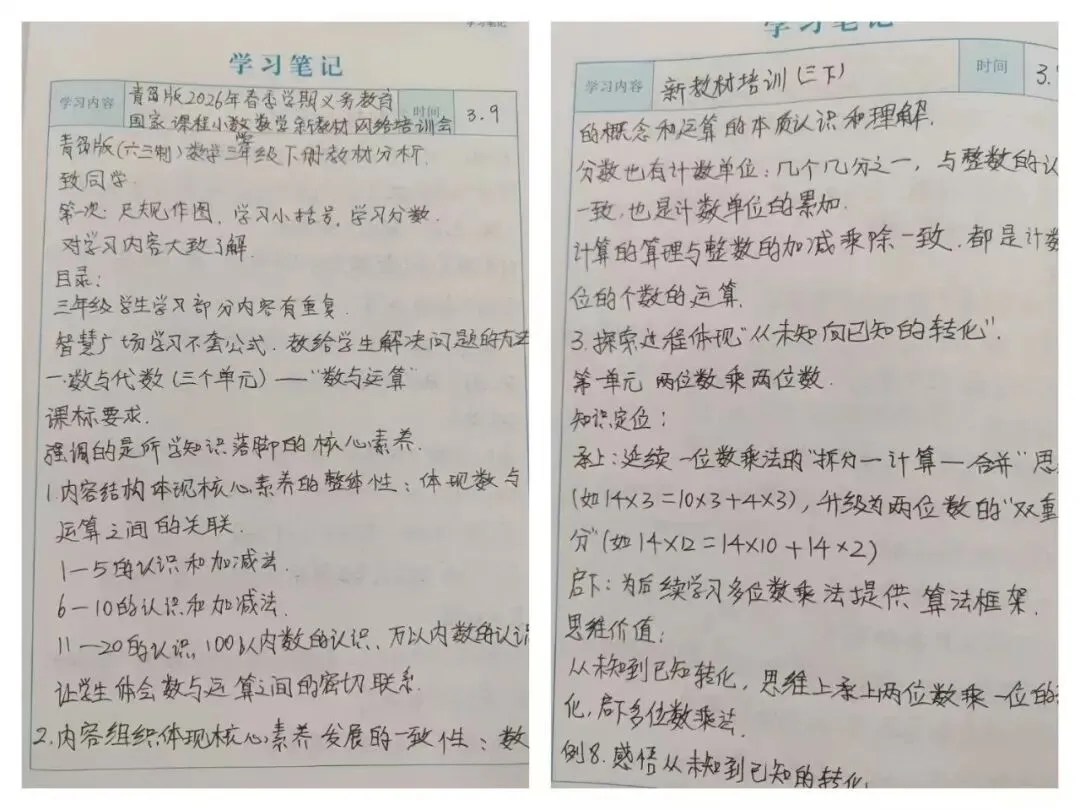 学习笔记
学习笔记
学习内容
青岛版2026年春季学期义务教育
国家课程小数数学新教材网络培训会
时间
3.9
青岛版(六三制)数学三年级下册教材分析.
致同学.
第一次:尺规作图,学习小括号,学习分数.
对学习内容大致了解.
目录:
三年级学生学习部分内容有重复.
智慧广场学习不套公式.教给学生解决问题的方法
一.数与代数(三个单元)——"数与运算"
课标要求.
强调的是所学知识落脚的核心素养.
1.内容结构体现核心素养的整体性:体现数与
运算之间的关联.
1—5的认识和加减法.
6—10的认识和加减法.
11—20的认识、100以内数的认识、万以内数的认识
让学生体会数与运算之间的密切联系.
2.内容组织体现核心素养发展的一致性:数
学习笔记
学习内容
新教材培训(三下)
时间
3.
的概念和运算的本质认识和理解.
分数也有计数单位:几个几分之一,与整数的认
一致,也是计数单位的累加.
计算的算理与整数的加减乘除一致.都是计数
位的个数的运算.
3.探索过程体现"从未知向已知的转化".
第一单元 两位数乘两位数.
知识定位:
承上:延续一位数乘法的"拆分—计算—合并"思
(如14×3=10×3+4×3),升级为两位数的"双重
分"(如14×12=14×10+14×2)
启下:为后续学习多位数乘法提供算法框架.
思维价值:
从未知到已知转化,思维上承上两位数乘一位的
化,启下多位数乘法.
例8.感悟从未知到已知的转化.